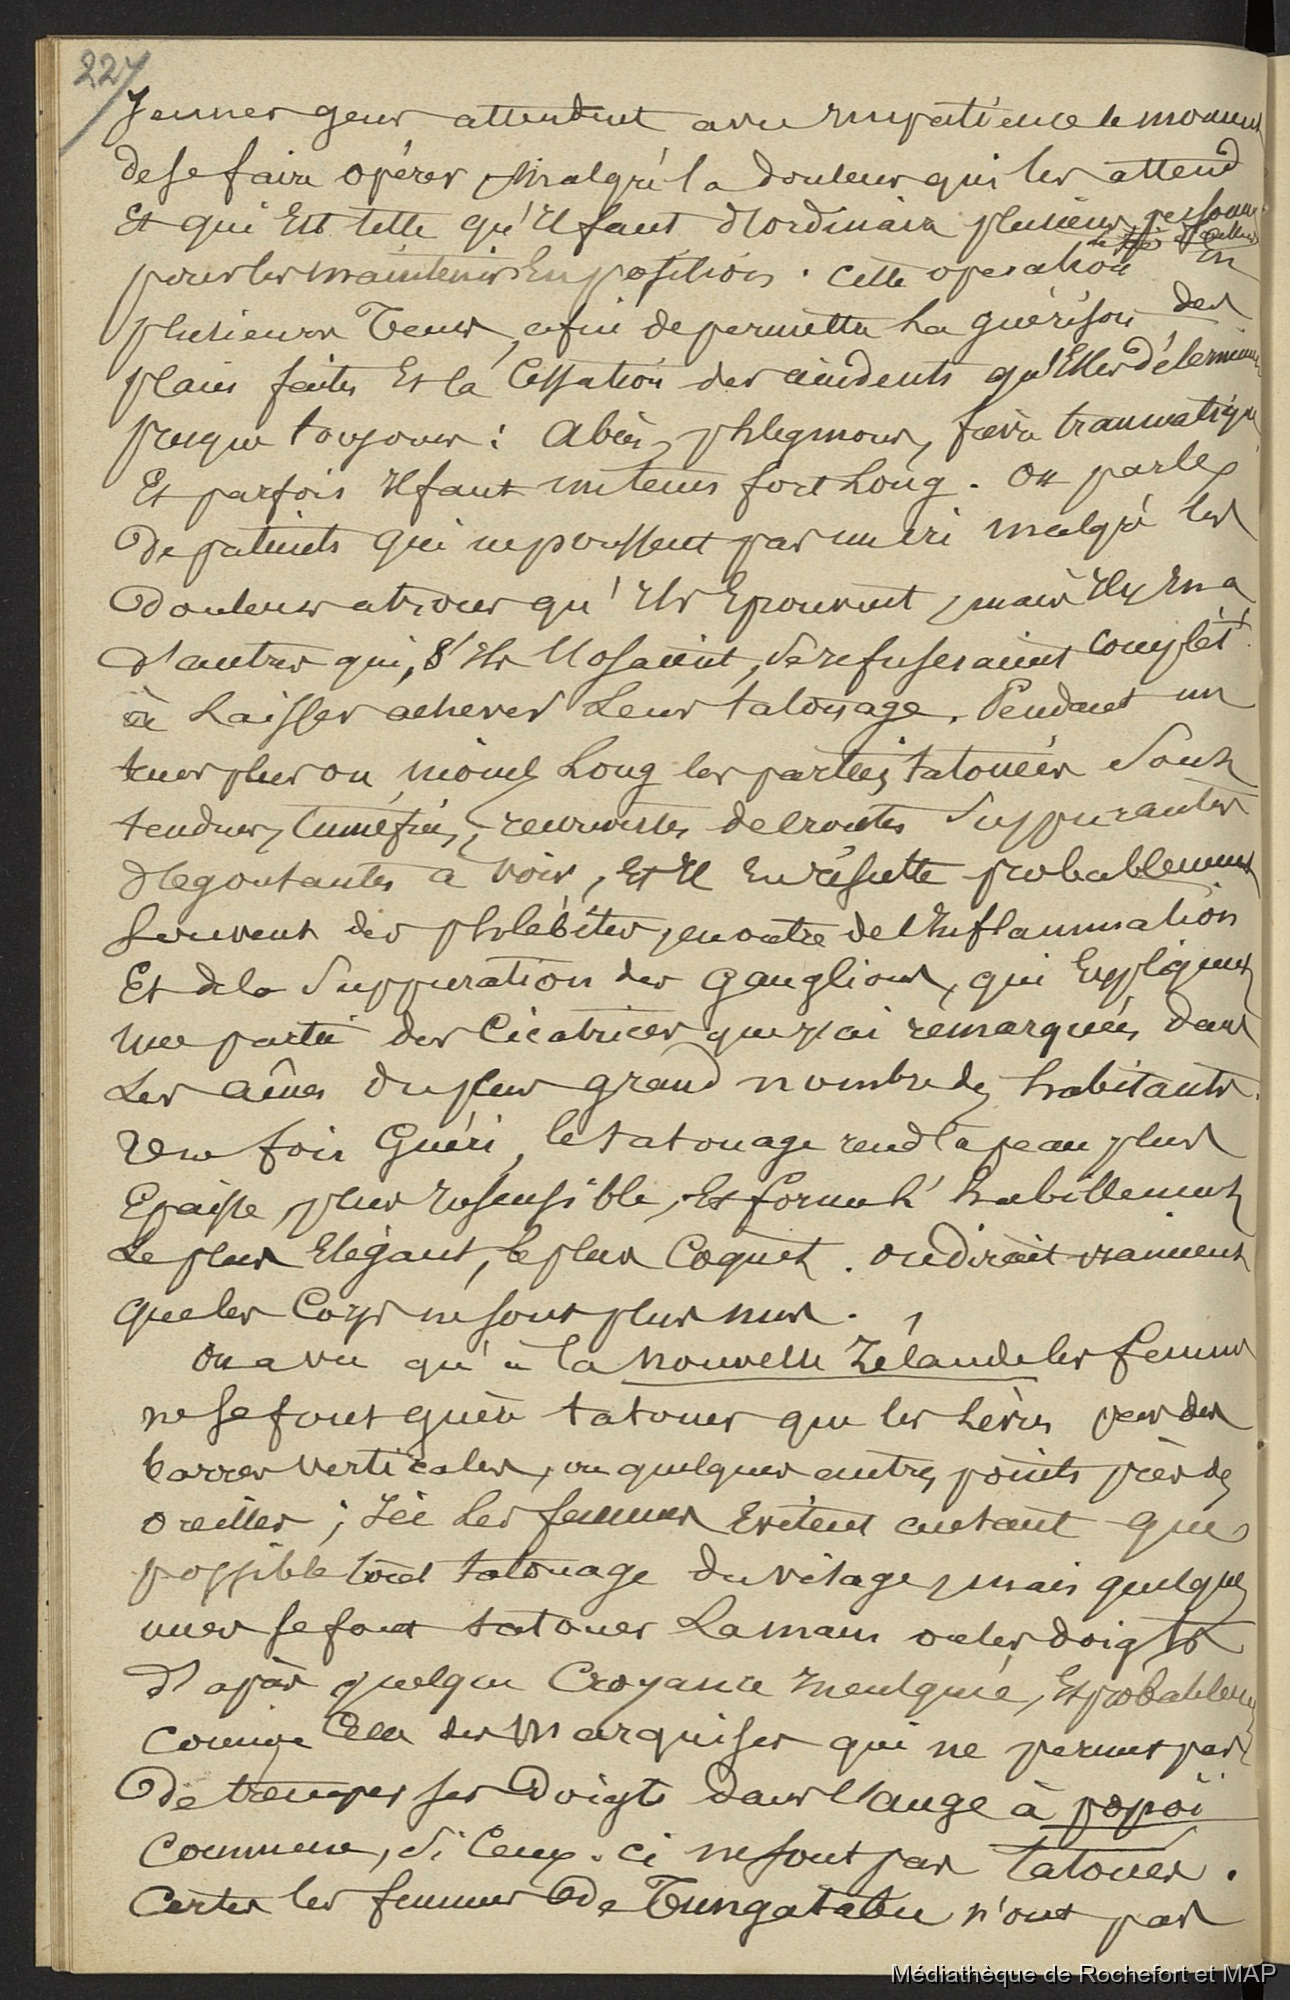 227
Jeunes gens attendent avec impatience le moment
de se faire opérer, malgré la douleur qui les attend
Et qui Est telle qu'Il faut d'ordinaire plusieurs personnes
pour les maintenir En position. Cette opération
En
plusieurs Temps, afin de permettre la guérison des
plaies faites Et la Cessation des accidents qu'Elles déterminent
presque toujours : Abcès, phlegmons, fièvre traumatique
Et parfois Il faut un temps fort Long. On parle
De patients qui ne poussent pas un cri malgré les
Douleurs atroces qu'Ils Eprouvent, mais Il y En a
d'autres qui, s'Ils l'osaient, se refuseraient complèt!
à Laisser achever Leur tatouage. Pendant un
temps plus ou moins Long les parties tatouées Sont
tendues, tuméfiées, recouvertes de croutes Suppurantes
dégoutantes à voir, Et Il En résulte probablement
Souvent des phlébites, en outre de l'Inflammation
Et de la Suppuration des Ganglions, qui Expliquent
une partie des Cicatrices que j'ai remarquées dans
Les aînes du plus grand nombre des habitants.
Une fois Guéri, le tatouage rend la peau plus
Epaisse, plus Insensible, Et forme l'habillement
Le plus Elégant, le plus Coquet. On dirait vraiment
que les Corps ne sont plus nus.
On a vu qu'à la Nouvelle Zélande les femmes
ne se font guère tatouer que les Lèvres par des
barres verticales, ou quelques autres points près des
oreilles ; Ici les femmes Evitent autant que
possible tout tatouage du visage, mais quelques
unes se font tatouer La main ou les doigts
d'après quelque Croyance Inculquée, Et probablement
comme Celle des Marquises qui ne permet pas
De tremper ses Doigts dans l'auge à popoï
Commune, Si Ceux-ci ne sont pas Tatoués.
Certes les femmes De Tungatabu n'ont pas
Médiathèque de Rochefort et MAP